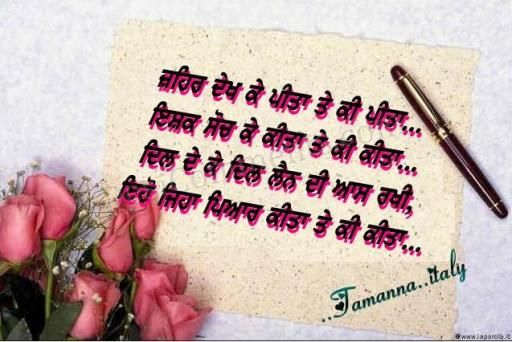 ਜ਼ਹਿਰ ਦੇਖ ਕੇ ਪੀਤਾ ਤੇ ਕੀ ਪੀਤਾ...
ਇਸ਼ਕ ਸੋਚ ਕੇ ਕੀਤਾ ਤੇ ਕੀ ਕੀਤਾ...
ਦਿਲ ਦੇ ਕੇ ਦਿਲ ਲੈਨ ਦੀ ਆਸ ਰਖੀ,
ਇਹੋ ਜਿਹਾ ਪਿਆਰ ਕੀਤਾ ਤੇ ਕੀ ਕੀਤਾ...
..Tamanna..italy